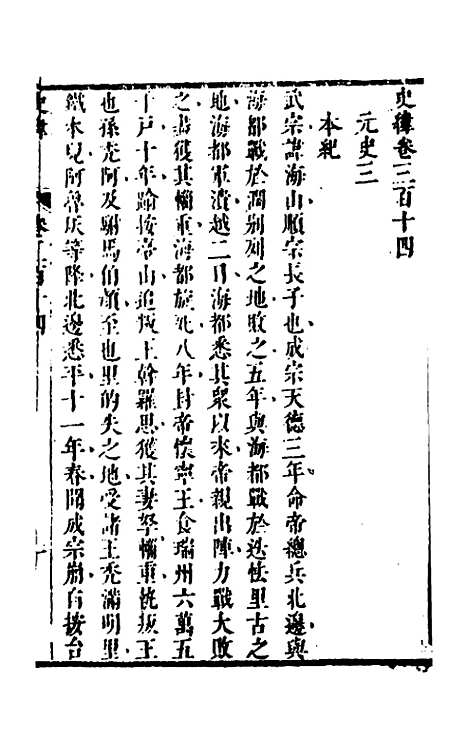 史緯卷三百十四
元史三
本紀
武宗諱海山順宗長子也成宗大德三年命帝總兵北邊與
海都戰於濶別列之地敗之五年與海都戰於迭怯里古之
地海都軍潰越二日海都悉其眾以來帝親出陣力戰大敗
之盡獲其輜重海都旋死八年封帝懷寧王食瑞州六萬五
千戶十年踰按台山追叛王斡羅思獲其妻孥輜重執叛王
也孫禿阿及駙馬伯顏至也里的失之地受諸王禿滿明里
鐵木兒阿魯灰等降北邊悉平十一年春聞成宗崩自按台
史緯
卷三百十四